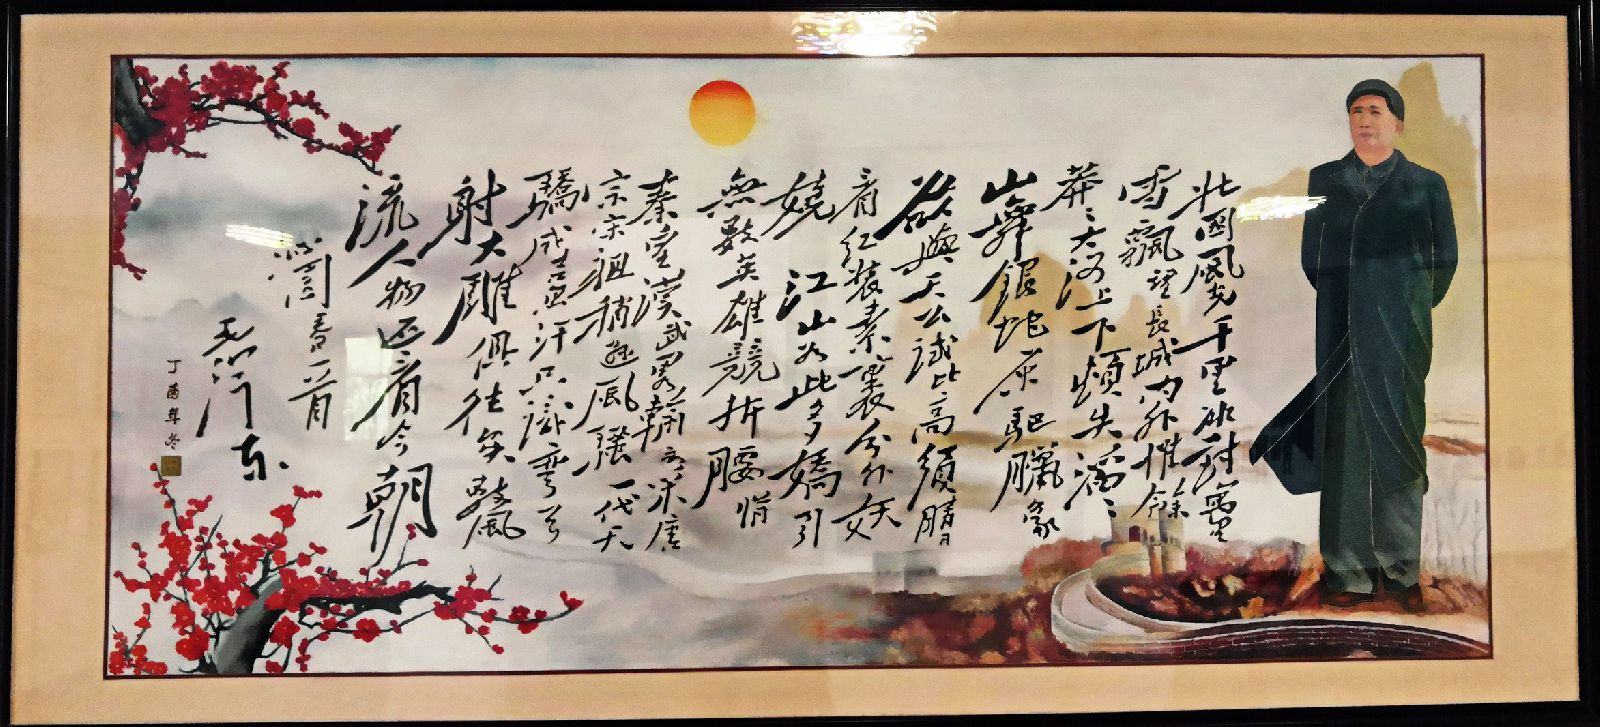 北國風光千里冰封萬里
雪飄望長城内外惟餘
莽〻大河上下頓失滔〻
山舞銀蛇原驅臘象
欲與天公試比高須晴日
看红装素裹分外妖
嬈 江山如此多嬌引
無數英雄競折腰惜
秦皇漢武略輸文采唐
宗宋祖稍遜風騷一代天
驕成吉思汗只識彎弓
射大雕俱往矣數風
流人物还看今朝
沁園春一首
毛澤東
丁酉年冬